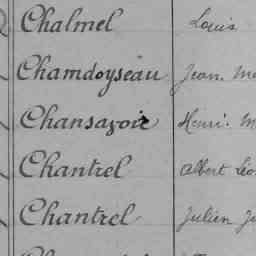 Chalmel Louis
Chamdoyseau Jean
Chansavoir Henri
Chantrel Albert
Chantrel Julien